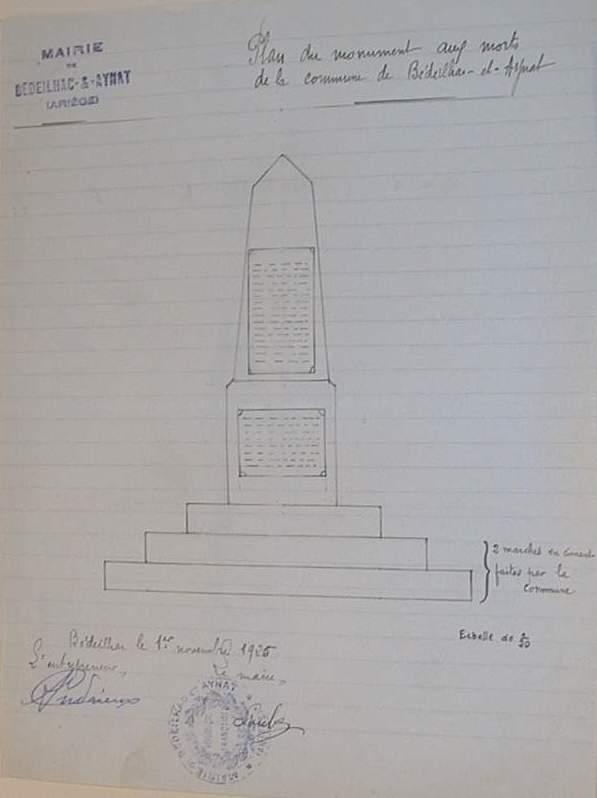 MAIRIE
DE
BÉDEILHAC-&-AYNAT
(ARIÈGE)
Plan du monument aux morts
de la commune de Bédeilhac-et-Aynat
2 marches en ciment
faites par la
Commune
Echelle de
Bédeilhac le 1er novembre 1925
L'entrepreneur,
Le maire,
AYNAT
MAIRIE